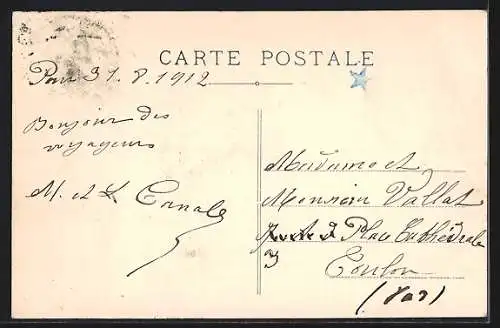 CARTE POSTALE
Pau 31.8.1912
Bonjour des
voyageurs
M. et L Canale
Madame et
Monsieur Vallat
3 Place Cathédrale
Toulon
(Var)